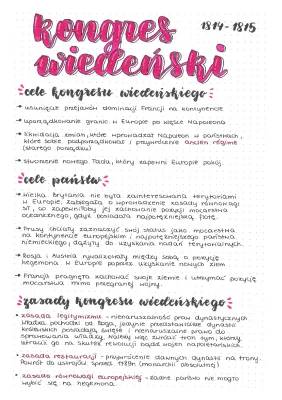 kongres
1814-1815
wiedeński
cele kongresu wiedeńskiego
→ usunięcie przejawów dominacji Francji na kontynencie
→ uporządkowanie granic w Europie po klęsce Napoleona
→ likwidacja zmian, które wprowadzał Napoleon w państwach,
które sobie podporządkował i przywrócenie ancien régime
(starego porządku)
→ stworzenie nowego ładu, który zapewni Europie pokój.
cele państw
→ Wielka Brytania nie była zainteresowana terytoriami
w Europie. Zabiegała o wprowadzenie zasady równowagi
sił, co zapewniłoby jej zachowanie pozycji mocarstwa
oceanicznego, gdyż posiadała najpotężniejszą flotę.
→ Prusy chciały zaznaczyć swój status jako mocarstwa
na kontynencie europejskim i najpotężniejszego państwa
niemieckiego, dążyły do uzyskania nadań terytorialnych.
→ Rosja i Austria rywalizowały między sobą o pozycję
hegemona w Europie poprzez uzyskanie nowych ziem.
→ Francja pragnęła zachować swoje ziemie i utrzymać pozycję
mocarstwa mimo przegranej wojny.
zasady kongresu wiedeńskiego
→ zasada legitymizmu - nienaruszalność praw dynastycznych
władza pochodzi od Boga, jedynie przedstawiciele dynastii
królewskich posiadają święte i nienaruszalne prawo do
sprawowania władzy, należy więc zwrócić tron tym, którzy
stracili go na skutek rewolucji bądź wojen napoleońskich.
→ zasada restauracji - przywrócenie dawnych dynastii na trony.
Powrót do ustrojów sprzed 1789r. (monarchii absolutnej)
→ zasada równowagi europejskiej - żadne państwo nie mogło
wybić się na hegemona.